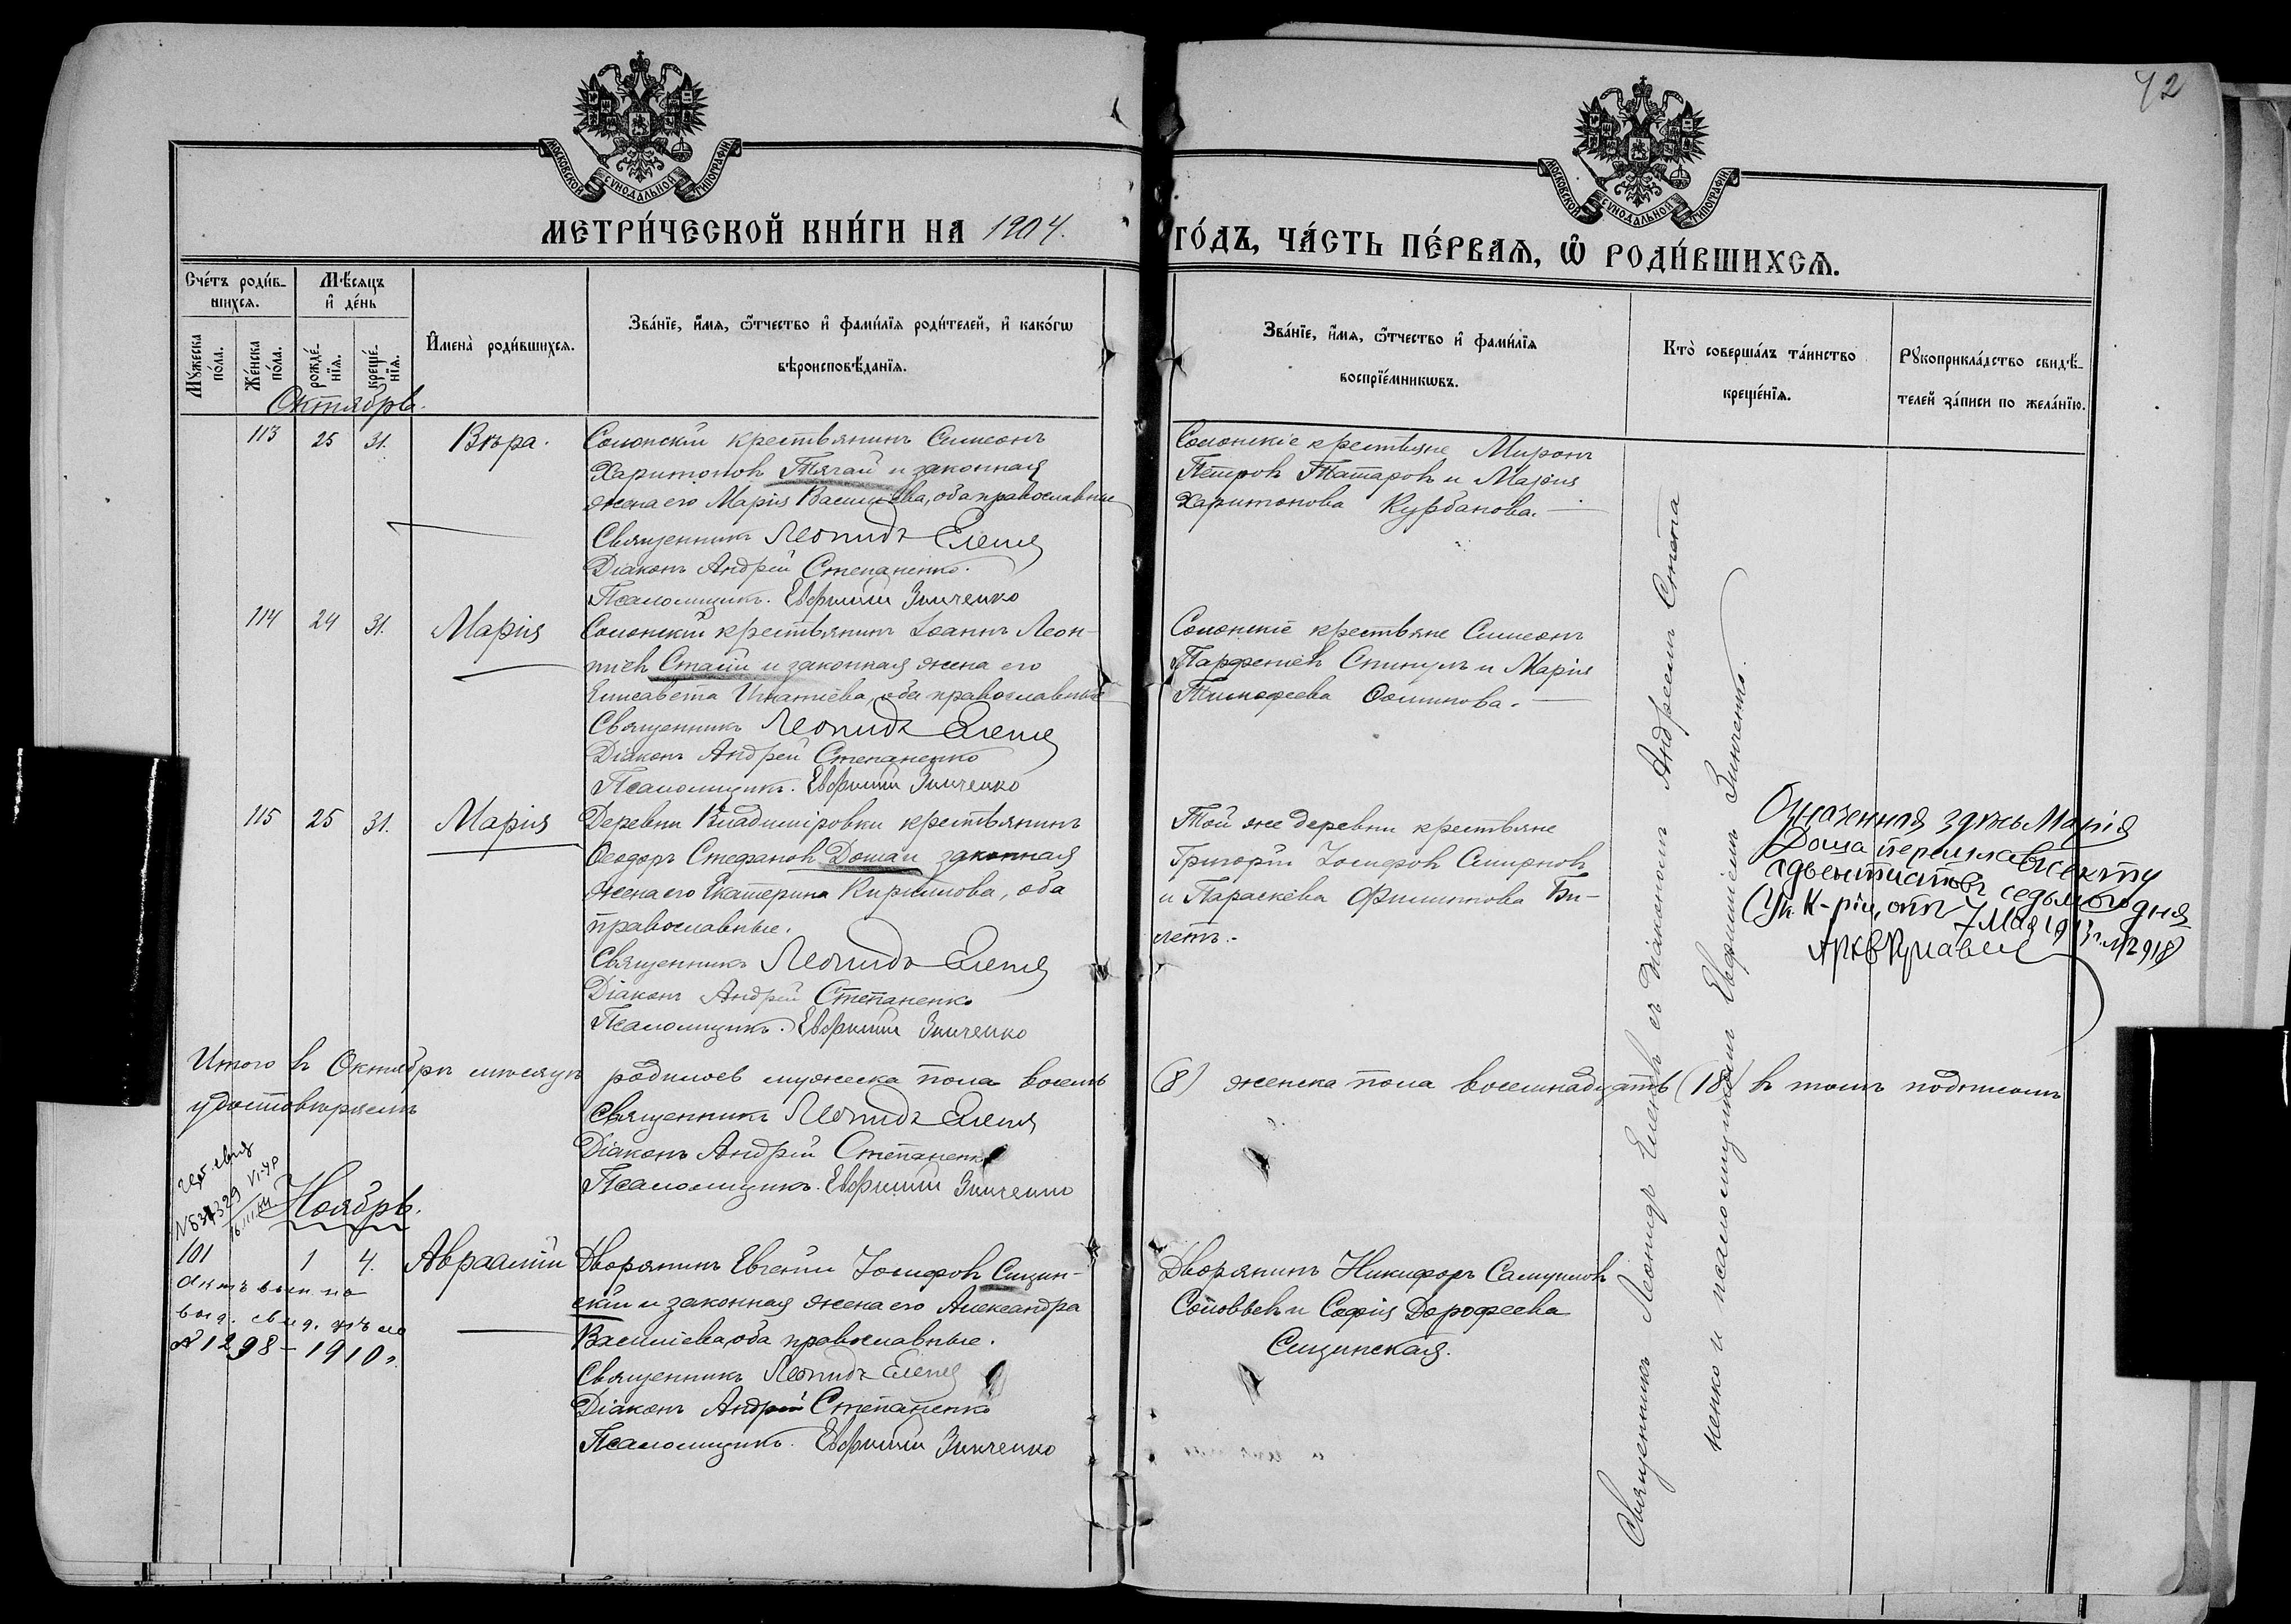 42
МОСКОВСКОЙ СѴНОДАЛЬНОЙ ТИПОГРАФІИ
МОСКОВСКОЙ СѴНОДАЛЬНОЙ ТИПОГРАФІИ
МЕТРИ́ЧЕСКОЙ КНИ́ГИ НА 1904.
ГО́ДЪ, ЧА́СТЬ ПЕ́РВАѦ, Ѽ РОДИ́ВШИХСѦ.
Сче́тъ роди́в-
шихсѧ.
Мꙋ́жеска по́ла.
Же́нска по́ла.
Мѣ́сяцъ и де́нь
рожде́-
нїѧ.
креще́-
нїѧ.
И҆мена̀ роди́вшихсѧ.
Зва́нїе, и҆́мѧ, ѻ҆́тчество и҆ фами́лїѧ роди́телей, и҆ како́гѡ
вѣроисповѣ́данїѧ.
Зва́нїе, и҆́мѧ, ѻ҆́тчество и҆ фами́лїѧ
воспрїе́мникѡвъ.
Кто̀ соверша́лъ та́инство
креще́нїѧ.
Рꙋкоприкла́дство свидѣ́-
телей за́писи по жела́нїю.
Октябрь.
113 25 31. Вѣра.
Солонскій крестьянинъ Симеонъ
Харитоновъ Тягай и законная
жена его Марія Васильева, оба православные
Священникъ Леонидъ Еленевъ
Діаконъ Андрей Степаненко.
Псаломщикъ. Евфимій Зинченко
Солонскіе крестьяне Миронъ
Петровъ Татаровъ и Марія
Харитонова Курбанова.
114 24 31. Марія
Солонскій крестьянинъ Іоаннъ Леон-
тіевъ Стаій и законная жена его
Елисавета Игнатіева, оба православные
Священникъ Леонидъ Еленевъ
Діаконъ Андрей Степаненко
Псаломщикъ. Евфимій Зинченко
Солонскіе крестьяне Симеонъ
Парфеніевъ Спинулъ и Марія
Тимофеева Осипова.
115 25 31. Марія
Деревни Владиміровки крестьянинъ
Ѳеодоръ Стефановъ Доша и законная
жена его Екатерина Кириллова, оба
православные.
Священникъ Леонидъ Еленевъ
Діаконъ Андрей Степаненко
Псаломщикъ. Евфимій Зинченко
Той же деревни крестьяне
Григорій Іосифовъ Смирновъ
и Параскева Филиппова Би-
летъ.
Означенная здѣсь Марія
Доша перешла въ секту
адвентистовъ седьмого дня
(Ук. К-ріи, отъ 7 Мая 1913 г. №
Итого въ Октябрѣ мѣсяцѣ родилось мужеска пола восемь
(8) женска пола восемнадцать (18) въ томъ подписомъ
удостовѣряемъ
Священникъ Леонидъ Еленевъ
Діаконъ Андрей Степаненко
Псаломщикъ. Евфимій Зинченко
Ноябрь.
101 1 4. Авраамій
Дворянинъ Евгеній Іосифовъ Сицин-
скій и законная жена его Александра
Васильева, оба православные.
Священникъ Леонидъ Еленевъ
Діаконъ Андрей Степаненко
Псаломщикъ. Евфимій Зинченко
Дворянинъ Никифоръ Самуиловъ
Соловьевъ и Софія Дорофеева
Сицинская.
№ 1298 – 1910 г.
Священникъ Леонидъ Еленевъ съ діакономъ Андреемъ Степа
ненко и псаломщикомъ Евфиміемъ Зинченко.